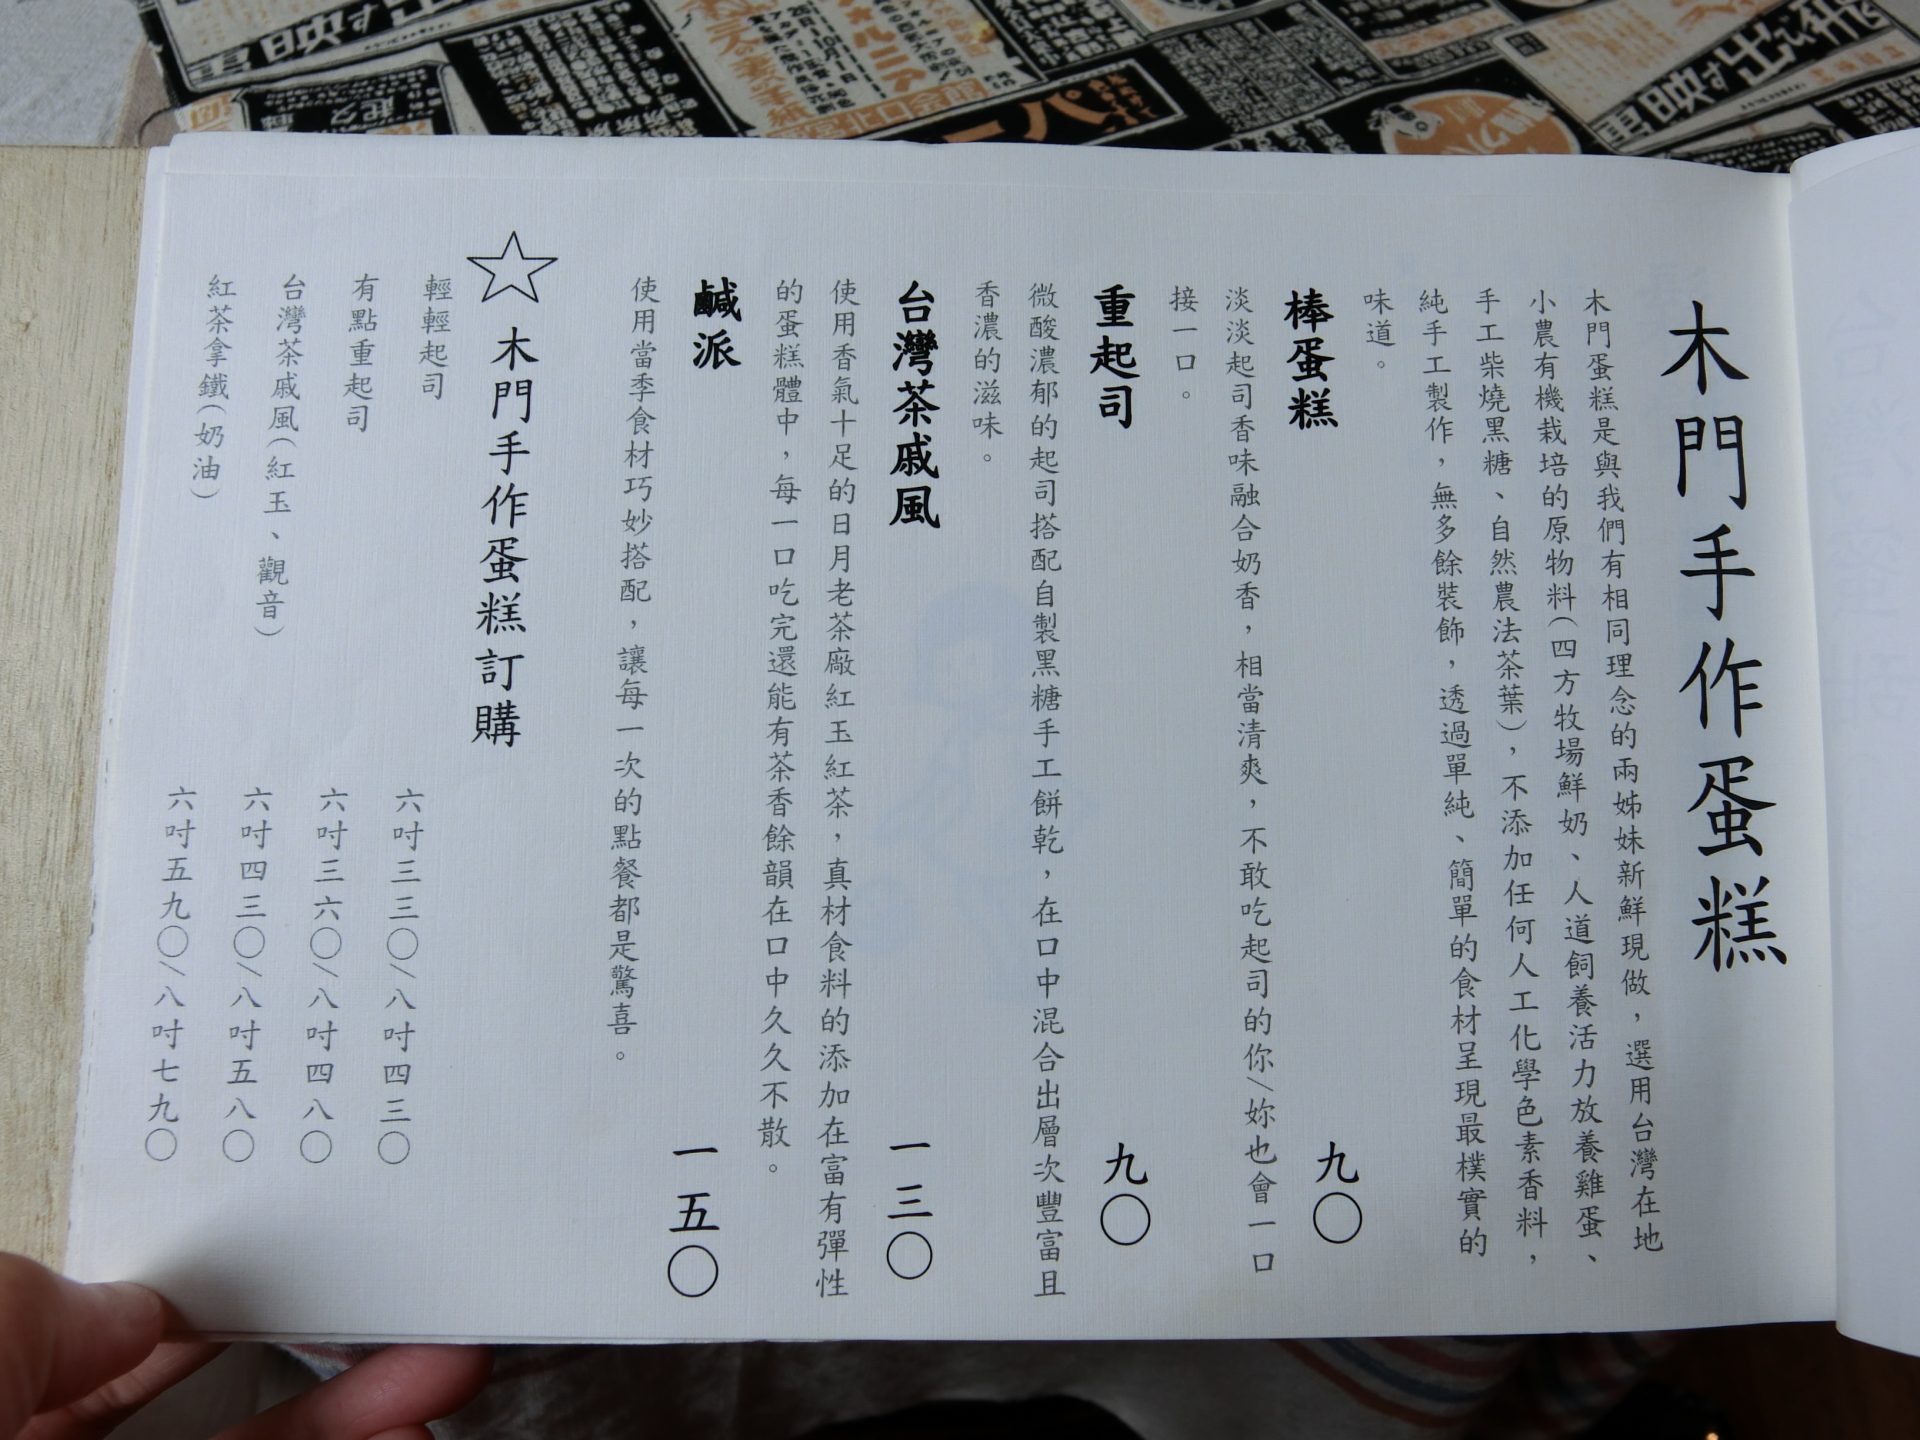 木門手作蛋糕
木門蛋糕是與我們有相同理念的兩姊妹新鮮現做，選用台灣在地
小農有機栽培的原物料（四方牧場鮮奶、人道飼養活力放養雞蛋、
手工柴燒黑糖、自然農法茶葉），不添加任何人工化學色素香料，
純手工製作，無多餘裝飾，透過單純、簡單的食材呈現最樸實的
味道。
棒蛋糕 九〇
淡淡起司香味融合奶香，相當清爽，不敢吃起司的你/妳也會一口
接一口。
重起司 九〇
微酸濃郁的起司搭配自製黑糖手工餅乾，在口中混合出層次豐富且
香濃的滋味。
台灣茶戚風 一三〇
使用香氣十足的日月老茶廠紅玉紅茶，真材食料的添加在富有彈性
的蛋糕體中，每一口吃完還能有茶香餘韻在口中久久不散。
鹹派 一五〇
使用當季食材巧妙搭配，讓每一次的點餐都是驚喜。
☆ 木門手作蛋糕訂購
輕輕起司 六吋三三〇/八吋四三〇
有點重起司 六吋三六〇/八吋四八〇
台灣茶戚風（紅玉、觀音） 六吋四三〇/八吋五八〇
紅茶拿鐵（奶油） 六吋五九〇/八吋七九〇